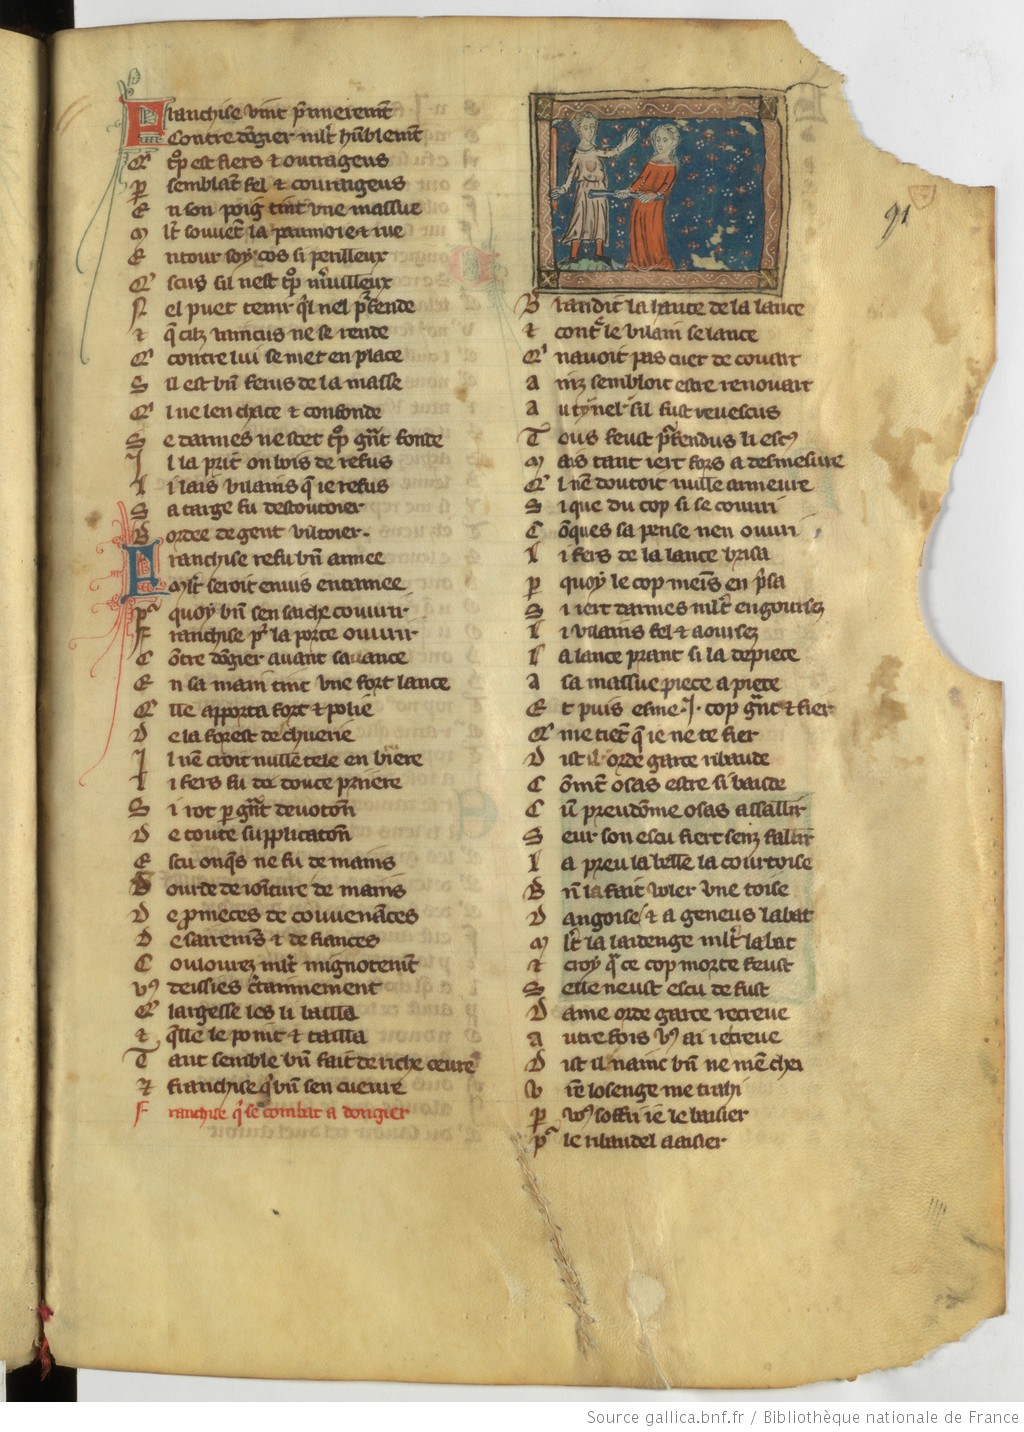 Franchise vint p̃mieremt̃
Contre dõgier mlt̃ hũblemt̃
Q' tp̃ est fiers & outrageus
p semblãt fel & courrageus
E n son poig tint vne massue
M lt̃ souuet̃ la paumoie & rue
E ntour soy cos si perilleux
Q' scus sil nest tp̃ m̃ueilleux
N el puet tenir q̃l nel p̃fende
⁊ q̃ cilz vaincus ne se rende
Q' contre lui se met en place
S il est bñ ferus de la masse
Q' l ne len chace & confonde
S e darmes ne scet tp̃ gñt fonde
I l la prit ou bois de refus
L i lais vilains q̃ ie refus
S a targe fu destoutoier
B ordee de gent viltoier.
Franchise refu bñ armee
Mlt̃ seroit enuis entamee
p̃ quoy bñ sen sache couurir
F ranchise p̃ la porte ouurir
C õtre dõgier auant sauance
E n sa main tint vne fort lance
Q' lle apporta fort & polie
D e la forest de chuerie
I l nẽ croit nulle tele en biere
L i fers fu de douce priere
S i rot p gñt deuotoñ
D e toute supplicatoñ
E scu onq̃s ne fu de mains
B ourde de ioĩture de mains
D e p̃messes de couuenãces
D e sarremẽs & de fiances
C oulourez mlt̃ mignotemt̃
v9 deissies c̃tainnement
Q' largesse les li bailla
⁊ q̃lle le poinit & tailla
T ant semble bñ fait de riche oeure
⁊ franchise q' bñ sen cueuure
F ranchise q' se combat a dongier
91
B randit la hante de la lance
⁊ cont̃ le vilain se lance
Q' nauoit pas cuer de couart
A inz sembloit estre renouart
A u tynel sil fust reuescus
T ous feust p̃fendus li esc9
M ais tant iert fors a desmesure
Q' l nẽ doutoit nulle armeure
S i que du cop si se couuri
C õques sa pense nen ouuri
L i fers de la lance brisa
p quoy le cop meĩs en p̃sa
S i iert darmes mlt̃ engoisez
L i vilains fel & aouisez
L a lance prant si la depiece
A sa massue piece a piece
E t puis esme .I. cop gñt & fier
Q' me tiet̃ q̃ ie ne te fier
D ist il orde garce ribaude
C õmt̃ osas estre si baude
C ũ preudõme osas assallir
S eur son escu fiert senz fallir
L a preu la belle la courtoise
B ñ la fait voler vne toise
D angoise & a genous labat
M lt̃ la laidenge mlt̃ la bat
⁊ croy q̃ ce cop morte feust
S elle neust escu de fust
D ame orde garce recreue
A utre fois v9 ai ie creue
D ist il nainc bñ ne mẽ chei
v rẽ losenge me trahi
p vo9 soffri ie le baisier
p̃ le ribaudel aaisier
Source gallica.bnf.fr / Bibliothèque nationale de France